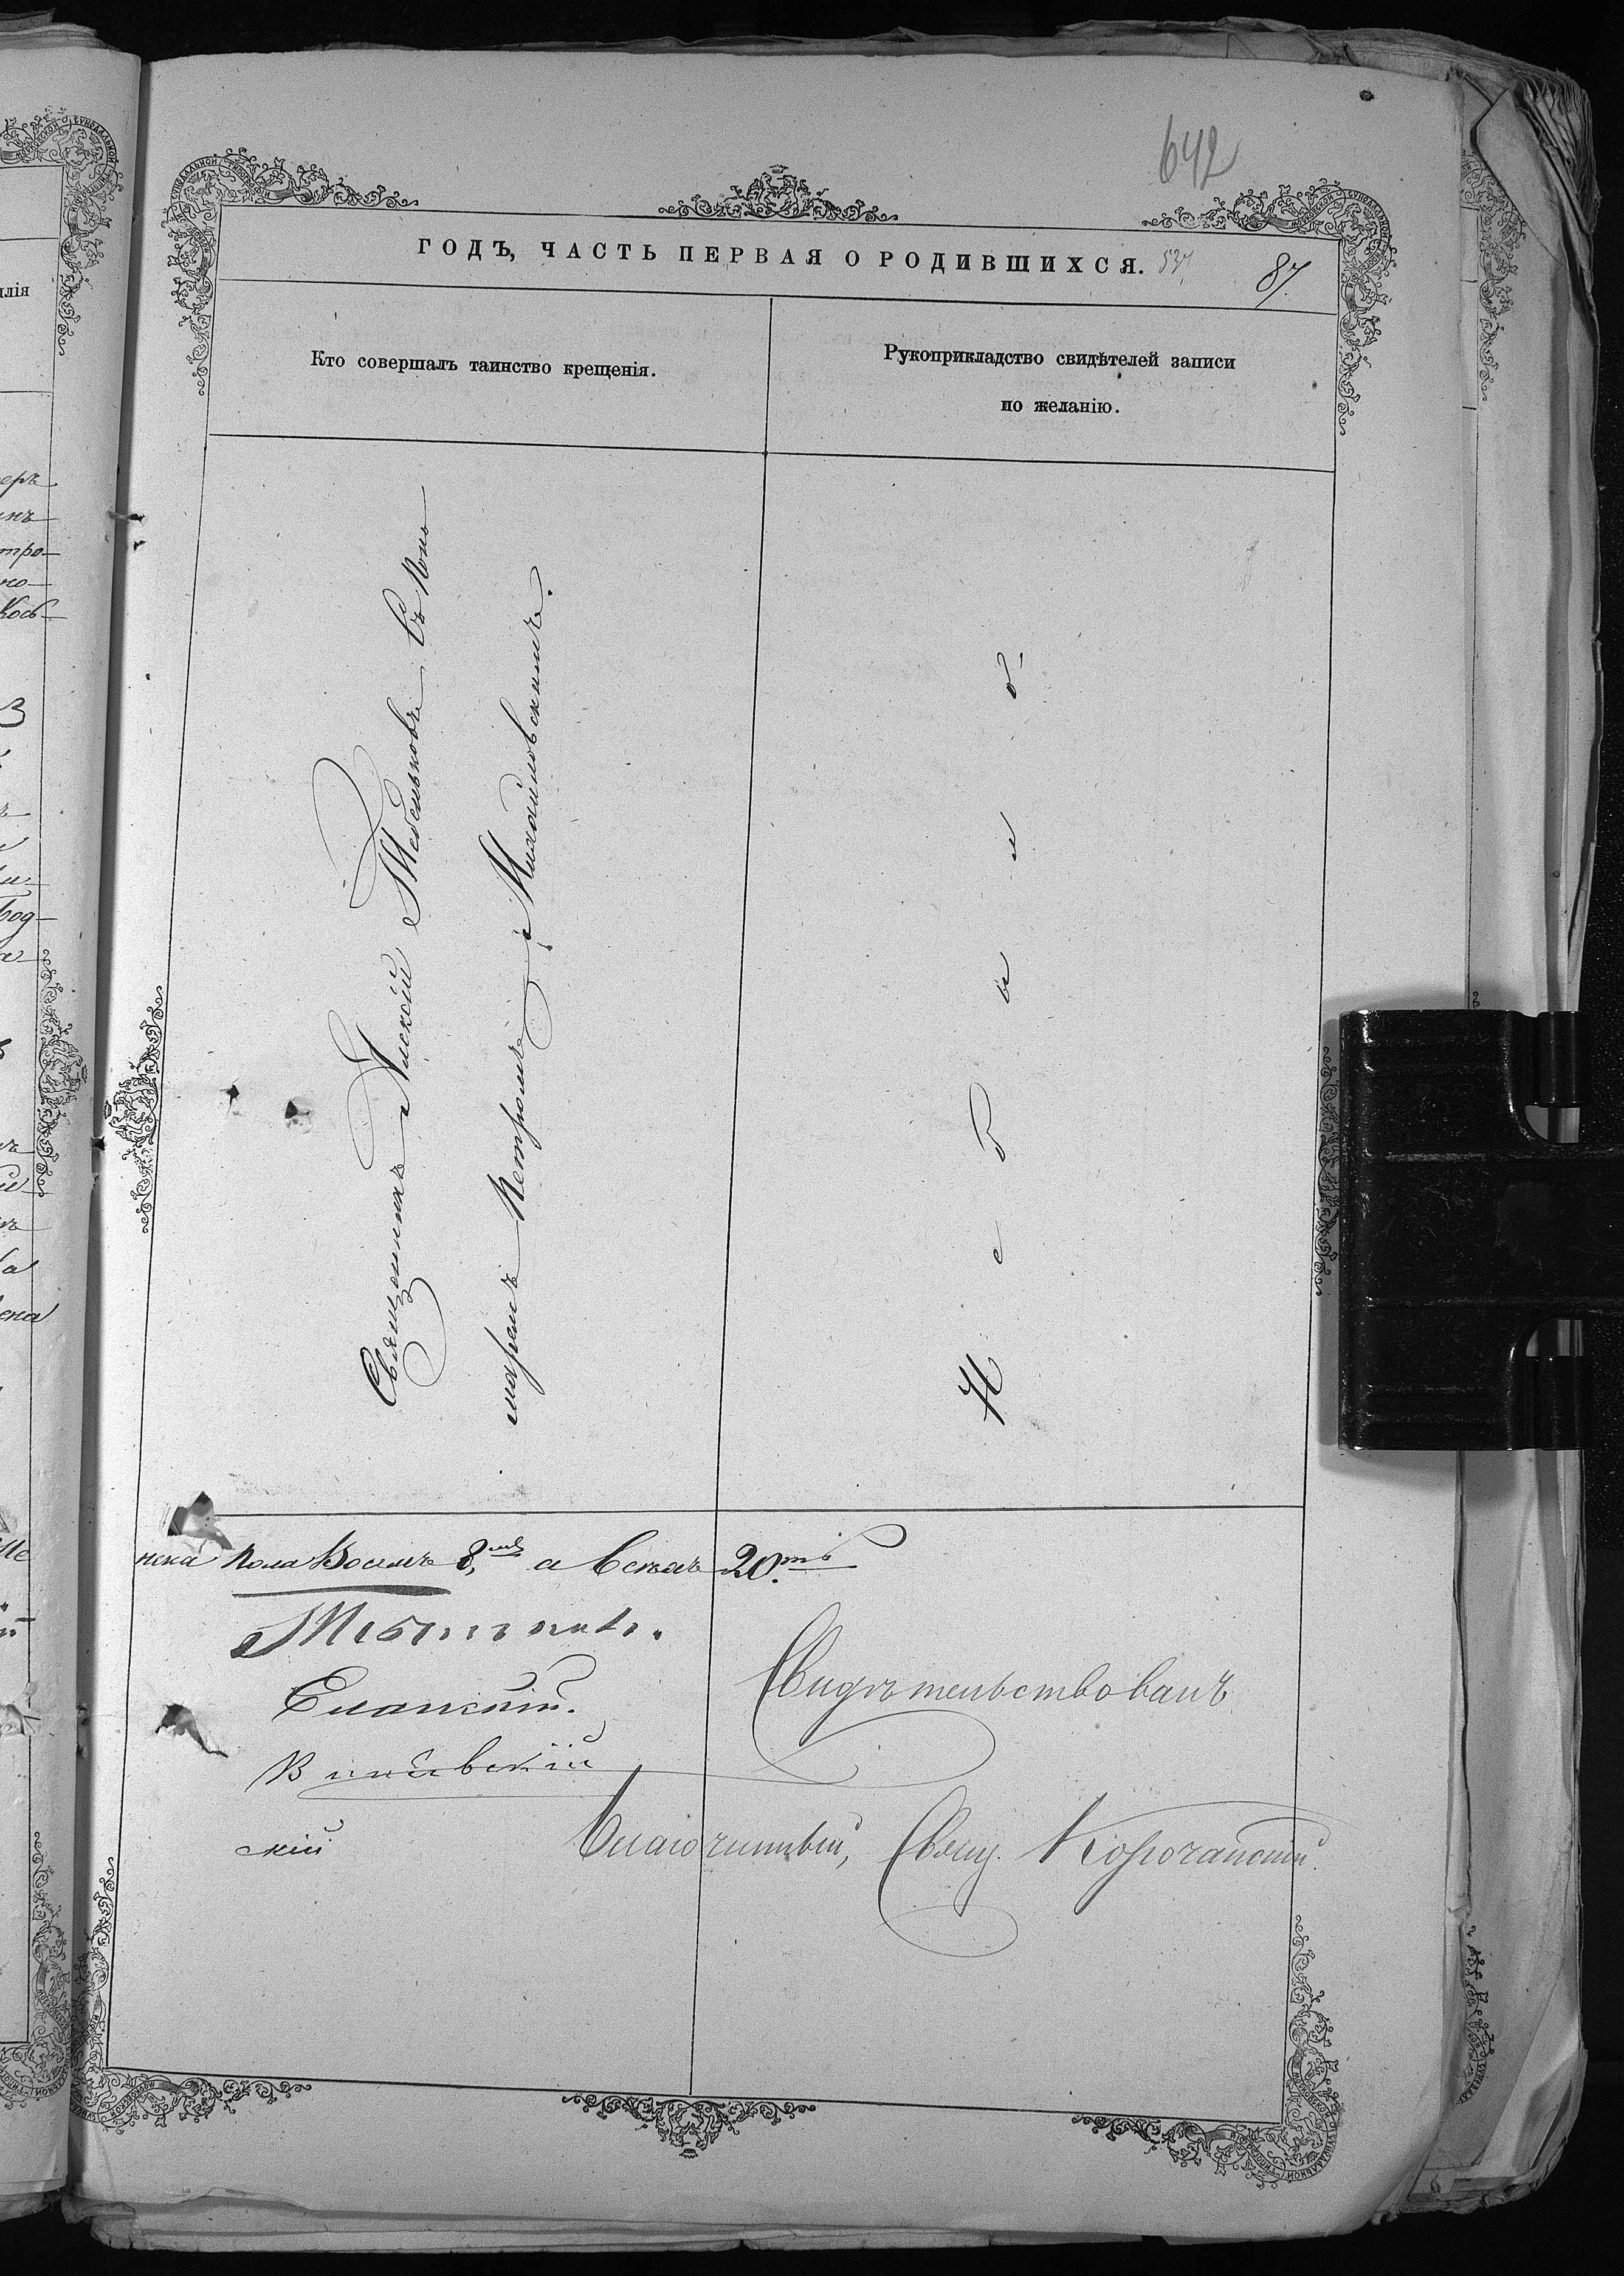 642
ГОДЪ, ЧАСТЬ ПЕРВАЯ О РОДИВШИХСЯ. 537 87.
Кто совершалъ таинство крещенія.
Рукоприкладство свидѣтелей записи
по желанію.
Священникъ Алексій Мебельковъ съ Поно
маремъ Петромъ Михайловскимъ.
Не было
нска пола Восемь 8, а всѣхъ 20.ть
Еланскій.
Свидѣтельствовалъ
скій
Благочинный, Свящ. Корочанскій.